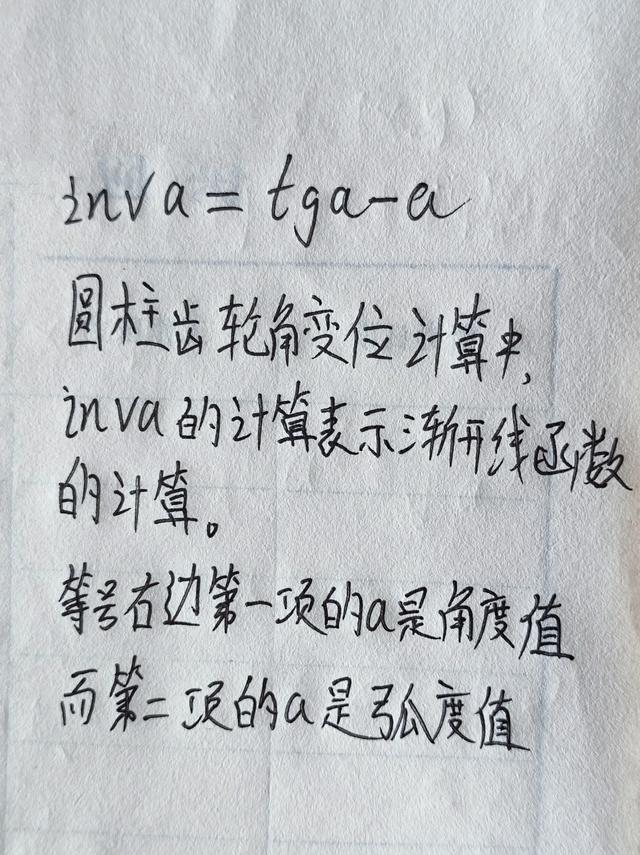 inva = tga-a
圆柱齿轮角变位计算中,
inva的计算表示渐开线函数
的计算。
等号右边第一项的a是角度值
而第二项的a是弧度值